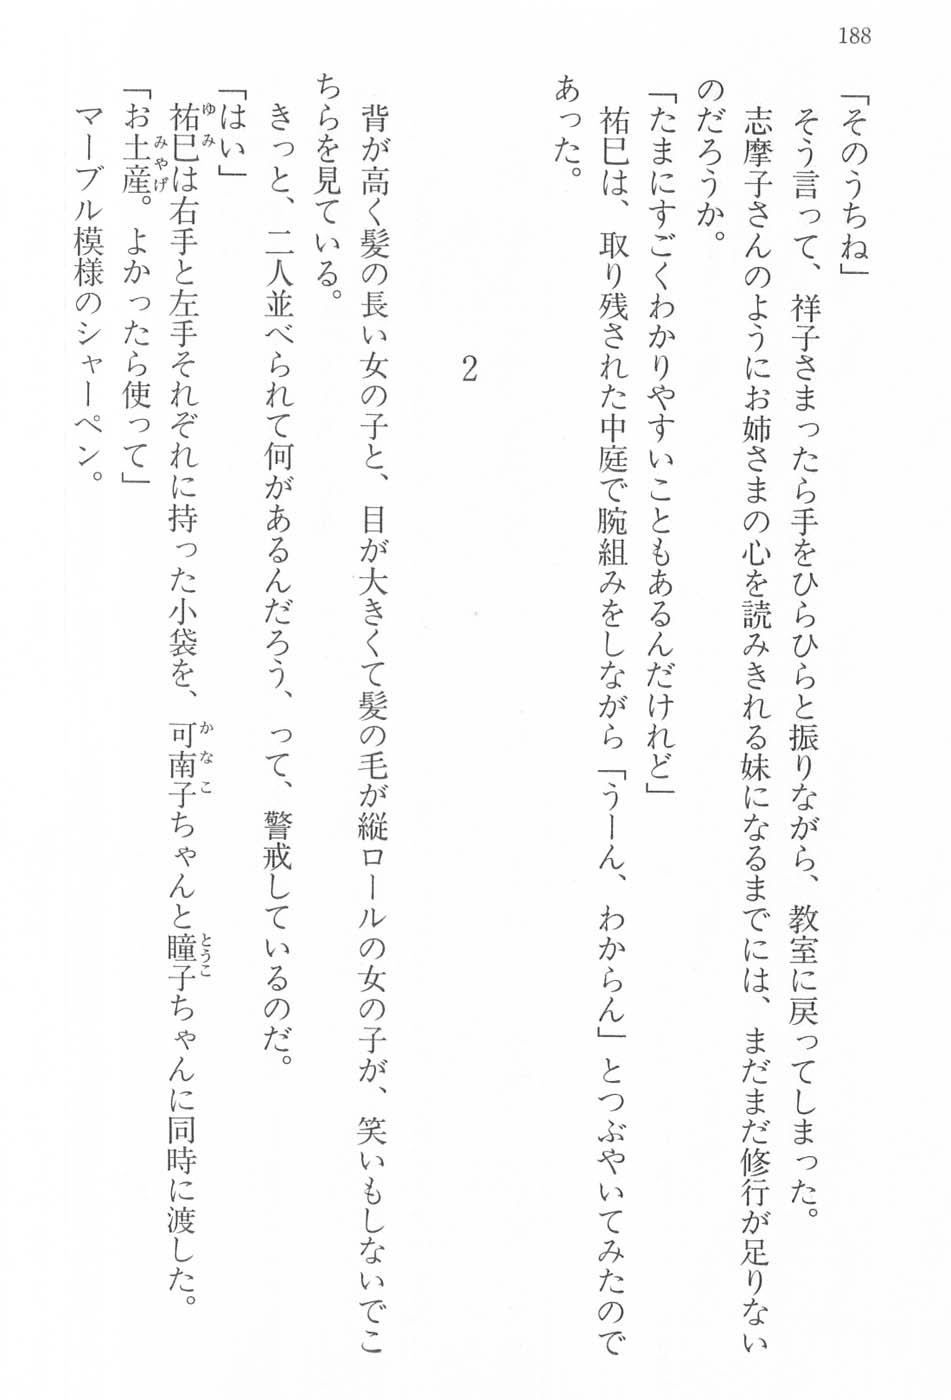 188
「そのうちね」
そう言って、祥子さまったら手をひらひらと振りながら、教室に戻ってしまった。
志摩子さんのようにお姉さまの心を読みきれる妹になるまでには、まだまだ修行が足りない
のだろうか。
「たまにすごくわかりやすいこともあるんだけれど」
祐巳は、取り残された中庭で腕組みをしながら「うーん、わからん」とつぶやいてみたので
あった。
2
背が高く髪の長い女の子と、目が大きくて髪の毛が縦ロールの女の子が、笑いもしないでこ
ちらを見ている。
きっと、二人並べられて何があるんだろう、って、警戒しているのだ。
「はい」
祐巳は右手と左手それぞれに持った小袋を、可南子ちゃんと瞳子ちゃんに同時に渡した。
「お土産。よかったら使って」
マーブル模様のシャーペン。